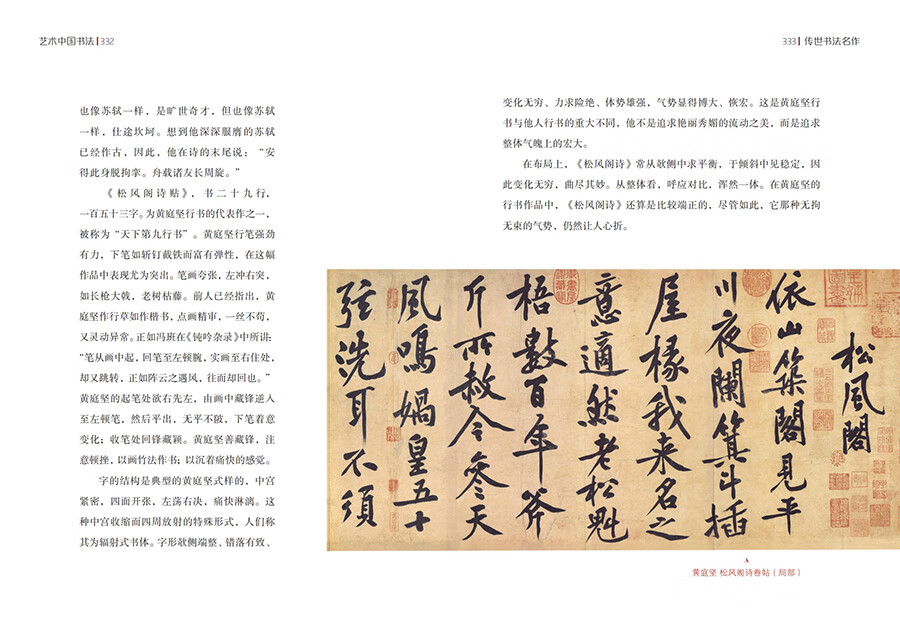 艺术中国书法 332
也像苏轼一样，是旷世奇才，但也像苏轼
一样，仕途坎坷。想到他深深服膺的苏轼
已经作古，因此，他在诗的末尾说：“安
得此身脱拘挛。舟载诸友长周旋。”
《松风阁诗贴》，书二十九行，
一百五十三字。为黄庭坚行书的代表作之一，
被称为“天下第九行书”。黄庭坚行笔强劲
有力，下笔如斩钉截铁而富有弹性，在这幅
作品中表现尤为突出。笔画夸张，左冲右突，
如长枪大戟，老树枯藤。前人已经指出，黄
庭坚作行草如作楷书，点画精审，一丝不苟，
又灵动异常。正如冯班在《钝吟杂录》中所讲：
“笔从画中起，回笔至左顿腕，实画至右住处，
却又跳转，正如阵云之遇风，往而却回也。”
黄庭坚的起笔处欲右先左，由画中藏锋逆入
至左顿笔，然后平出，无平不陂，下笔着意
变化；收笔处回锋藏颖。黄庭坚善藏锋，注
意顿挫，以画竹法作书；以沉着痛快的感觉。
字的结构是典型的黄庭坚式样的，中宫
紧密，四面开张，左荡右决，痛快淋漓。这
种中宫收缩而四周放射的特殊形式，人们称
其为辐射式书体。字形欹侧端整、错落有致、
333 传世书法名作
变化无穷、力求险绝、体势雄强，气势显得博大、恢宏。这是黄庭坚行
书与他人行书的重大不同，他不是追求艳丽秀媚的流动之美，而是追求
整体气魄上的宏大。
在布局上，《松风阁诗》常从欹侧中求平衡，于倾斜中见稳定，因
此变化无穷，曲尽其妙。从整体看，呼应对比，浑然一体。在黄庭坚的
行书作品中，《松风阁诗》还算是比较端正的，尽管如此，它那种无拘
无束的气势，仍然让人心折。
松風閣
依山築閣見平
川夜闌箕斗插
屋椽我来名之
意適然老松魁
梧數百年斧
斤所赦今參天
風鳴媧皇五十
弦洗耳不須
黄庭坚 松风阁诗卷帖（局部）